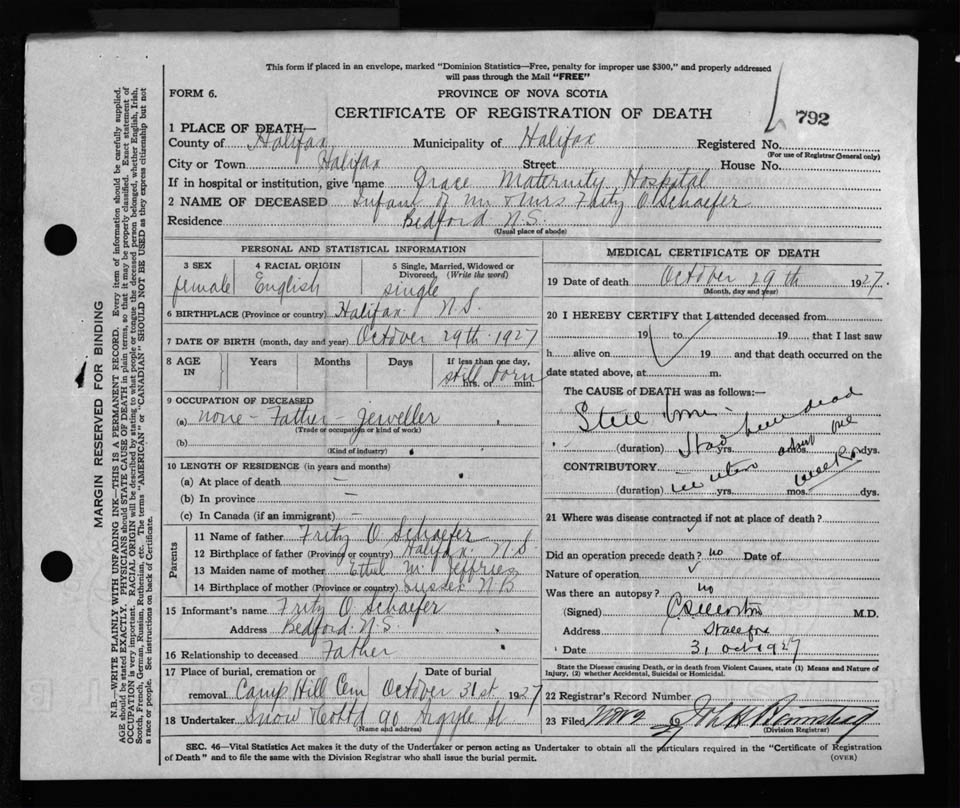 This form if placed in an envelope, marked "Dominion Statistics—Free, penalty for improper use $300," and properly addressed
will pass through the Mail "FREE"
FORM 6.
PROVINCE OF NOVA SCOTIA
CERTIFICATE OF REGISTRATION OF DEATH
792
1 PLACE OF DEATH—
County of Halifax Municipality of Halifax Registered No.
(For use of Registrar General only)
City or Town Halifax Street House No.
If in hospital or institution, give name Grace Maternity Hospital
2 NAME OF DECEASED Infant of Mr & Mrs Fritz O Schaefer
Residence Bedford N.S.
(Usual place of abode)
PERSONAL AND STATISTICAL INFORMATION
3 SEX female
4 RACIAL ORIGIN English
5 Single, Married, Widowed or Divorced, (Write the word) single
6 BIRTHPLACE (Province or country) Halifax N.S.
7 DATE OF BIRTH (month, day and year) October 29th 1927
8 AGE IN Years Months Days If less than one day, hrs. or min. still born
9 OCCUPATION OF DECEASED
(a) none - Father - jeweller
(Trade or occupation or kind of work)
(b)
(Kind of industry)
10 LENGTH OF RESIDENCE (in years and months)
(a) At place of death —
(b) In province —
(c) In Canada (if an immigrant) —
Parents
11 Name of father Fritz O Schaefer
12 Birthplace of father (Province or country) Halifax. N.S.
13 Maiden name of mother Ethel M Jeffries
14 Birthplace of mother (Province or country) Sussex N.B
15 Informant's name Fritz O Schaefer
Address Bedford N.S.
16 Relationship to deceased Father
17 Place of burial, cremation or removal Camp Hill Cem Date of burial October 31st 1927
18 Undertaker Snow & Co Ltd 90 Argyle St
(Name and address)
MEDICAL CERTIFICATE OF DEATH
19 Date of death October 29th 1927.
(Month, day and year)
20 I HEREBY CERTIFY that I attended deceased from
19 to 19 that I last saw
h alive on 19 and that death occurred on the
date stated above, at m.
The CAUSE of DEATH was as follows:
Still born
Had been dead
(duration) yrs. mos. dys.
in utero about one week
CONTRIBUTORY
(duration) yrs. mos. dys.
21 Where was disease contracted if not at place of death?
Did an operation precede death? no Date of
Nature of operation
Was there an autopsy? no
(Signed) M.D.
Address Halifax
Date 31 Oct 1927
State the Disease causing Death, or in death from Violent Causes, state (1) Means and Nature of
Injury, (2) whether Accidental, Suicidal or Homicidal.
22 Registrar's Record Number
23 Filed Nov 2 19 27
(Division Registrar)
SEC. 46—Vital Statistics Act makes it the duty of the Undertaker or person acting as Undertaker to obtain all the particulars required in the "Certificate of Registration
of Death" and to file the same with the Division Registrar who shall issue the burial permit.
(OVER)
MARGIN RESERVED FOR BINDING
N.B.—WRITE PLAINLY WITH UNFADING INK—THIS IS A PERMANENT RECORD. Every item of information should be carefully supplied.
AGE should be stated EXACTLY. PHYSICIANS should STATE CAUSE OF DEATH in plain terms, so that it may be properly classified. Exact statement of
OCCUPATION is very important. RACIAL ORIGIN will be described by stating to what people or tongue the deceased person belonged, whether English, Irish,
Scotch, French, German, Russian, Ruthenian, etc. The terms "AMERICAN" or "CANADIAN" SHOULD NOT BE USED as they express citizenship but not
a race or people. See instructions on back of Certificate.